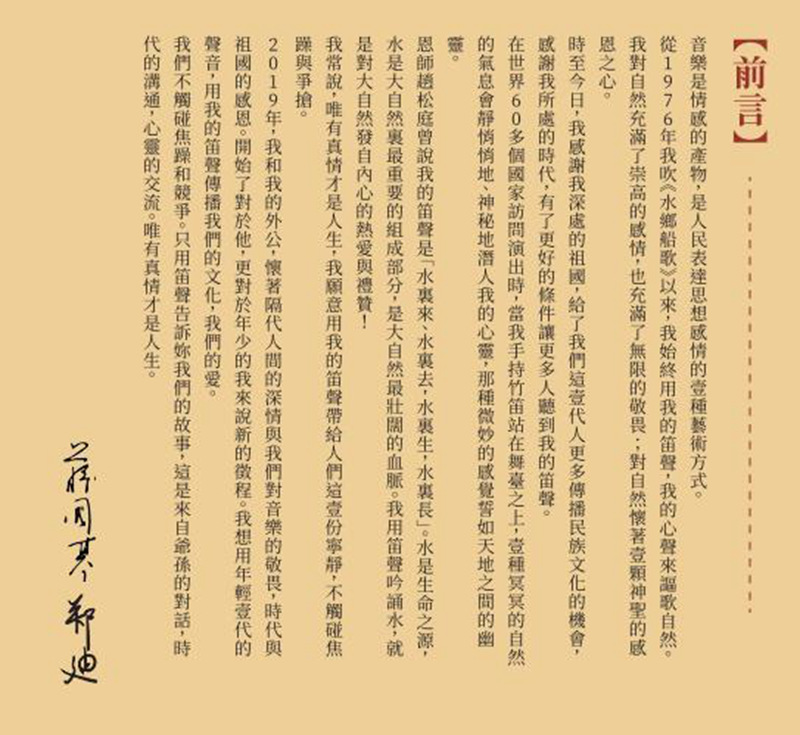 【前言】
音樂是情感的產物，是人民表達思想感情的壹種藝術方式。
從1976年我吹《水鄉船歌》以來，我始終用我的笛聲，我的心聲來謳歌自然。
我對自然充滿了崇高的感情，也充滿了無限的敬畏；對自然懷著壹顆神聖的感
恩之心。
時至今日，我感謝我深處的祖國，給了我們這壹代人更多傳播民族文化的機會，
感謝我所處的時代，有了更好的條件讓更多人聽到我的笛聲。
在世界60多個國家訪問演出時，當我手持竹笛站在舞臺之上，壹種冥冥的自然
的氣息會靜悄悄地、神秘地潛人我的心靈，那種微妙的感覺誓如天地之間的幽
靈。
恩師趙松庭曾說我的笛聲是「水裏來、水裏去，水裏生，水裏長」。水是生命之源，
水是大自然裏最重要的組成部分，是大自然最壯闊的血脈。我用笛聲吟誦水，就
是對大自然發自內心的熱愛與禮贊！
我常說，唯有真情才是人生，我願意用我的笛聲帶給人們這壹份寧靜，不觸碰焦
躁與爭搶。
2019年，我和我的外公，懷著隔代人間的深情與我們對音樂的敬畏，時代與
祖國的感恩。開始了對於他，更對於年少的我來說新的徵程。我想用年輕壹代的
聲音，用我的笛聲傳播我們的文化，我們的愛。
我們不觸碰焦躁和競爭。只用笛聲告訴妳我們的故事，這是來自爺孫的對話，時
代的溝通，心靈的交流。唯有真情才是人生。
蔣國基 鄭迪